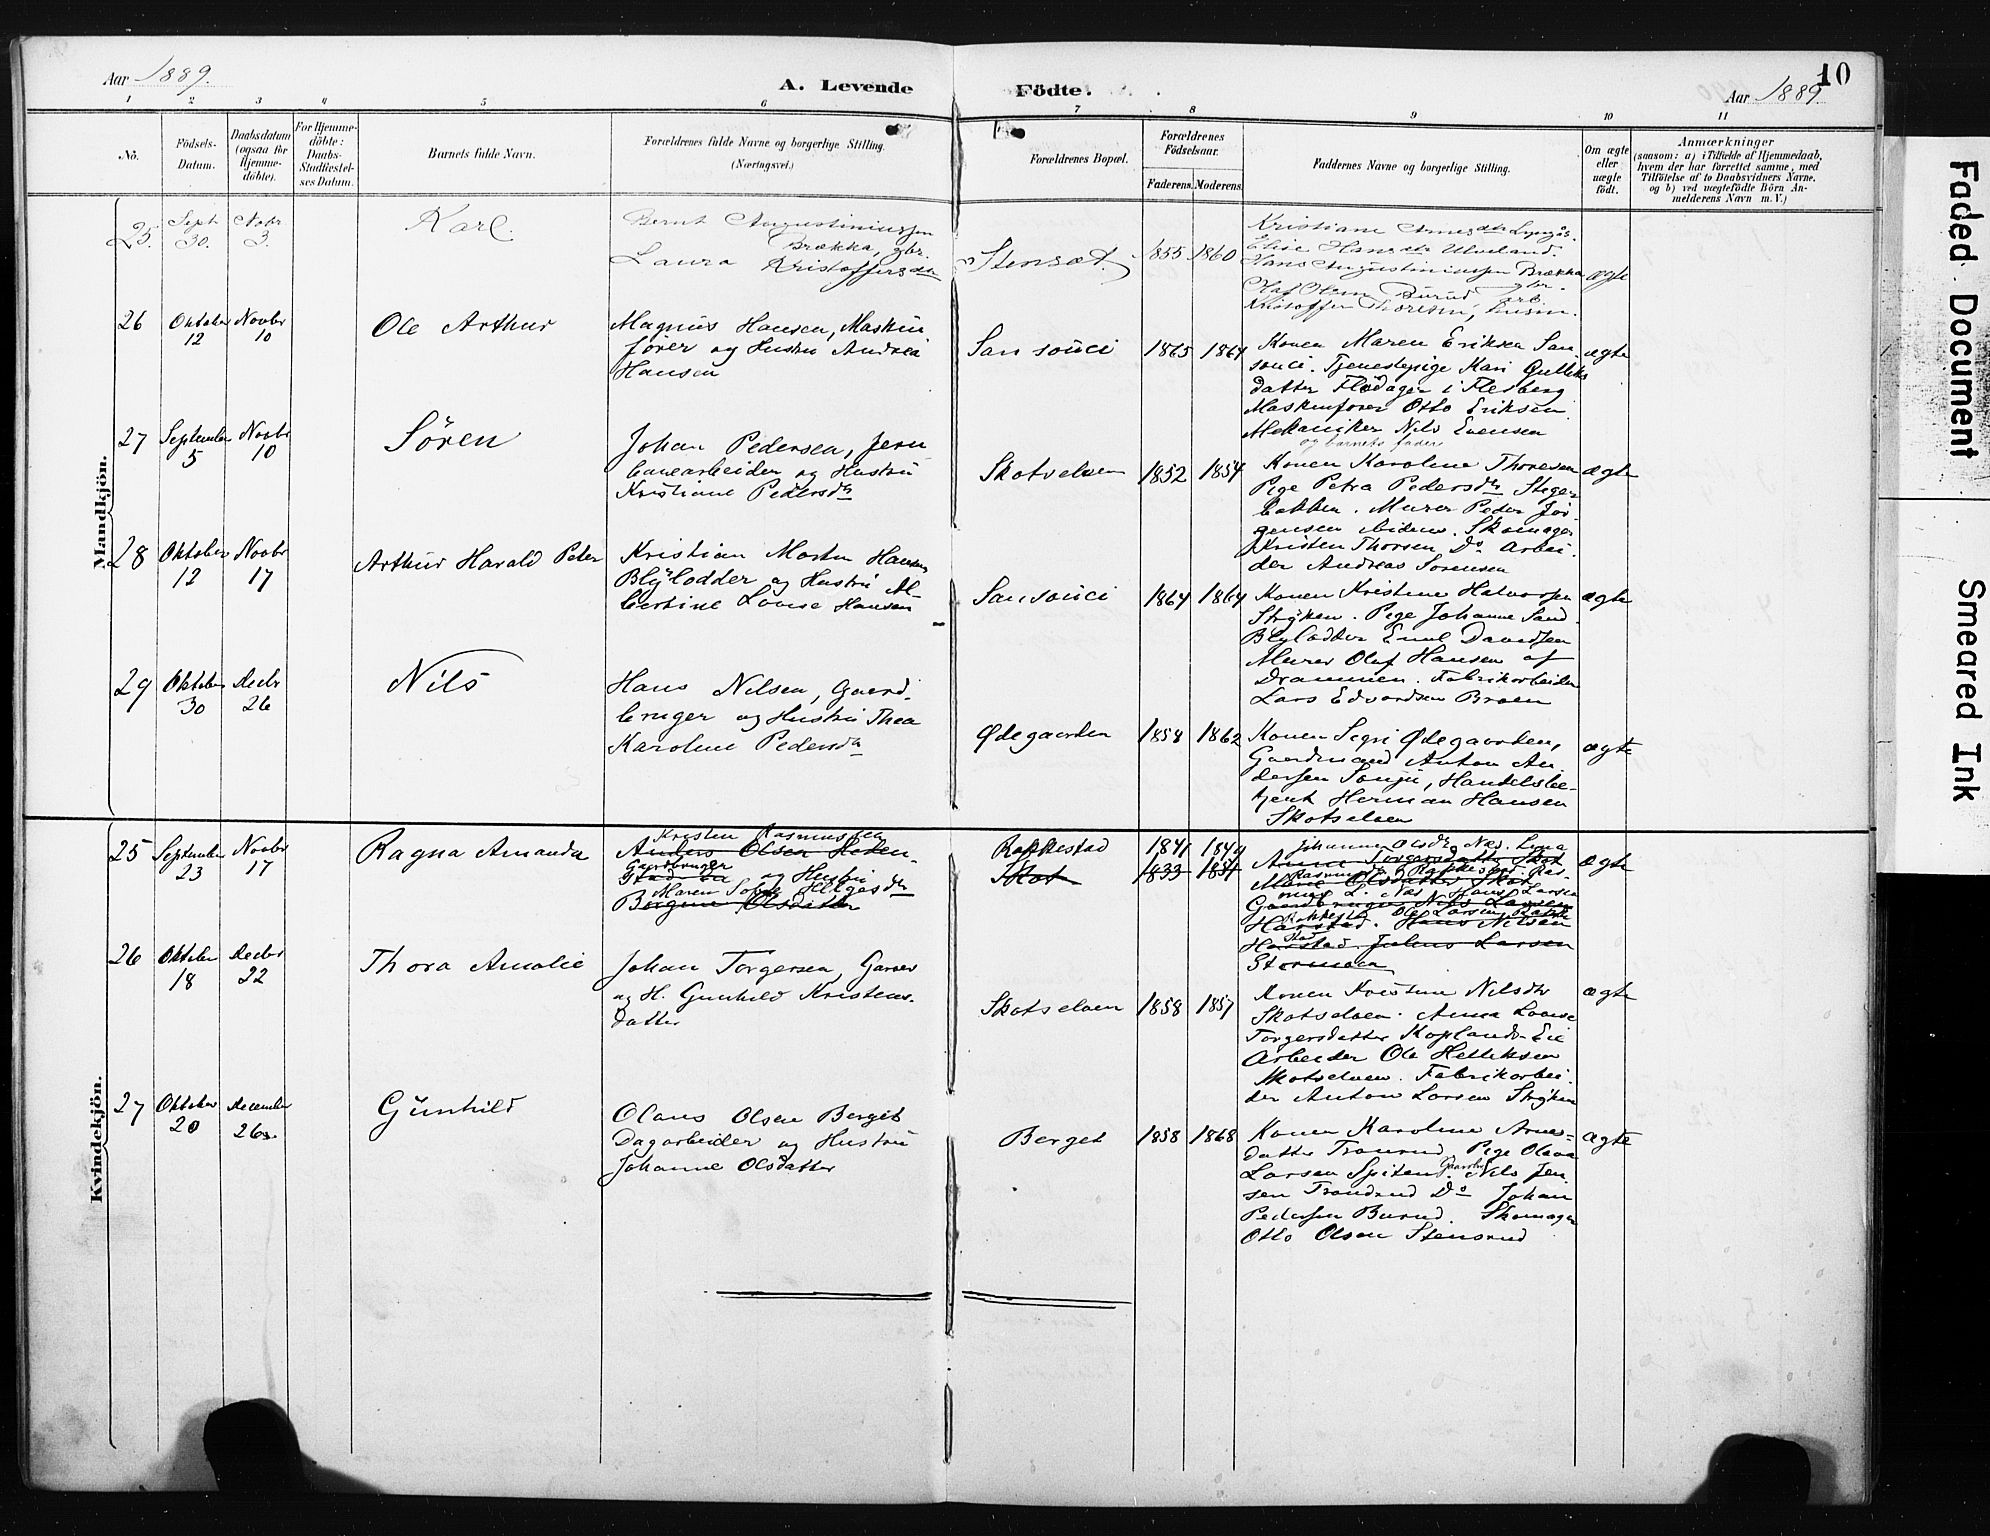 Aar 1889.
A. Levende Födte.
Aar 1889
10
1 2 3 4 5 6 7 8 9 10 11
No.
Födsels-Datum.
Daabsdatum (ogsaa for Hjemme-döbte).
For Hjemme-döbte: Daabs-Stadfæstel-ses Datum.
Barnets fulde Navn.
Forældrenes fulde Navne og borgerlige Stilling. (Næringsvei.)
Forældrenes Bopæl.
Forældrenes Födselsaar.
Faderens. Moderens.
Faddernes Navne og borgerlige Stilling.
Om ægte eller uægte födt.
Anmærkninger
(saasom: a) i Tilfælde af Hjemmedaab,
hvem der har forrettet samme, med
Tilföielse af to Daabsvidners Navne.
og b) ved uægtefödte Börn An-
melderens Navn m. V.)
Mandkjön.
25. Sept 30. Novbr 3. Karl.
Bernt Augustiniussen
Brækka, gbr.
Laura Kristoffersdtr
Stensæt. 1855 1860
Kristiane
Elise Hansdtr Ulveland.
Hans Augustiniussen Brækka
gbr.
Olaf Olsen Burud arb.
Kristoffer
ægte
26 Oktober 12 Novbr 10 Ole Arthur
Magnus Hansen, Maskin
fører og Hustru Andrea
Hansen
Sansouci 1865 1864
Konen Maren Eriksen San
souci. Tjenestepige Kari Gulliks
datter Flødager i Flesberg
Maskenfører Otto Eriksen
Mekaniker Nils Evensen
og barnets fader
ægte
27 September 5 Novbr 10 Søren
Johan Pedersen, Jern
banearbeider og Hustru
Kristiane Pedersdtr
Skotselven 1852 1854
Konen Karoline Thoresen
Pige Petra Pedersdtr Steger
bakken. Murer Peder Jør
gensen ibidem. Skomager
Kristen Thorsen Do Arbei
der Andreas Sørensen
ægte
28 Oktober 12 Novbr 17 Arthur Harald Peter
Kristian Martin Hansen
Blylodder og Hustru Al-
bertine Lovise Hansen
Sansouci 1864 1864
Konen Kristine Halvorsen
Stryken. Pige Johanne Sand
Blylodder Emil Davidsen
Murer Olaf Hansen af
Drammen. Fabrikarbeider
Lars Edvardsen Broen
ægte
29 Oktober 30 Decbr 26 Nils
Hans Nilsen, Gaard-
bruger og Hustru Thea
Karoline Pedersdtr
Ødegaarden 1858 1862
Konen Segri Ødegaarden,
Gaardmand Anton An
dersen Sonju, Handelsbe-
tjent Herman Hansen
Skotselven
ægte
Kvindekjön.
25 September 23 Novbr 17 Ragna Amanda
Kristen Rasmussen
Anders Olsen Heden-
Gaardbruger
og Hustru
Maren Sofie Helgesdtr
Bergine Olsdatter
Rokkestad 1841 1849
Skot 1833 1854
Johanne Olsdtr Næs. Lina
Anna Torgersdatter Skot
Rasmussen Rokkestad. Ras-
Marie Olsdatter Skot
mus L. Næs Hans Larsen
Gaardbruger Nils Larsen
Rokkestad. Ole Larsen Rokke
Harstad. Hans Nilsen
stad
Harstad. Julius Larsen
Stormoen
ægte
26 Oktober 18 Decbr 22 Thora Amalie
Johan Torgersen, Garver
og H. Gunhild Kristens-
datter
Skotselven 1858 1857
Konen Kristine Nilsdtr
Skotselven. Anna Lovise
Torgersdatter Koplands-Eie
Arbeider Ole Helleksen
Skotselven. Fabrikarbei
der Anton Larsen Stryken
ægte
27 Oktober 20 December 26 Gunhild
Olaus Olsen Berget
Dagarbeider og Hustru
Johanne Olsdatter
Berget 1858 1868
Konen Karoline Arnes-
datter Tronrud. Pige Olava
Larsen Spiten. Gaardbr Nils Jen
sen Trondrud Do Johan
Pedersen Burud. Skomager
Otto Olsen Stensrud
ægte
Faded Document
Smeared Ink